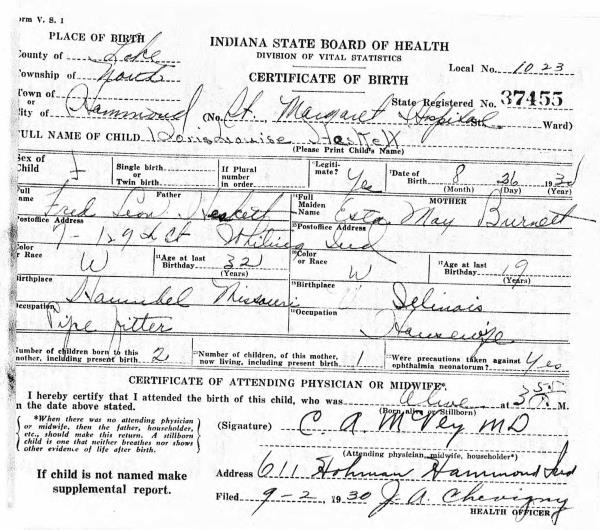 orm V. S. 1
PLACE OF BIRTH
INDIANA STATE BOARD OF HEALTH
DIVISION OF VITAL STATISTICS
CERTIFICATE OF BIRTH
County of Lake
Local No. 1023
Township of North
Town of
or
City of Hammond (No. St. Margaret Hospital St. Ward)
State Registered No. 37455
FULL NAME OF CHILD Doris Louise Heskett
(Please Print Child's Name)
Sex of Child F
Single birth
or
Twin birth
If Plural number in order
Legitimate? Yes
Date of Birth 8 26 1930
(Month) (Day) (Year)
Father
Full Name Fred Leon Heskett
MOTHER
Full Maiden Name Esta May Burnett
Postoffice Address 129 Whiting Ind
Postoffice Address
Color or Race W
Age at last Birthday 32 (Years)
Color or Race W
Age at last Birthday 19 (Years)
Birthplace Hannibel Missouri
Birthplace Illinois
Occupation Pipe fitter
Occupation Housewife
Number of children born to this mother, including present birth 2
Number of children, of this mother, now living, including present birth 1
Were precautions taken against ophthalmia neonatorum? Yes
CERTIFICATE OF ATTENDING PHYSICIAN OR MIDWIFE*.
I hereby certify that I attended the birth of this child, who was alive at 3 55 M.
on the date above stated.
(Born alive or Stillborn)
*When there was no attending physician
or midwife, then the father, householder,
etc., should make this return. A stillborn
child is one that neither breathes nor shows
other evidence of life after birth.
(Signature) C A McVey MD
(Attending physician, midwife, householder*)
If child is not named make
supplemental report.
Address 611 Hohman Hammond Ind
Filed 9-2, 1930 J. A. Chevigny
HEALTH OFFICER